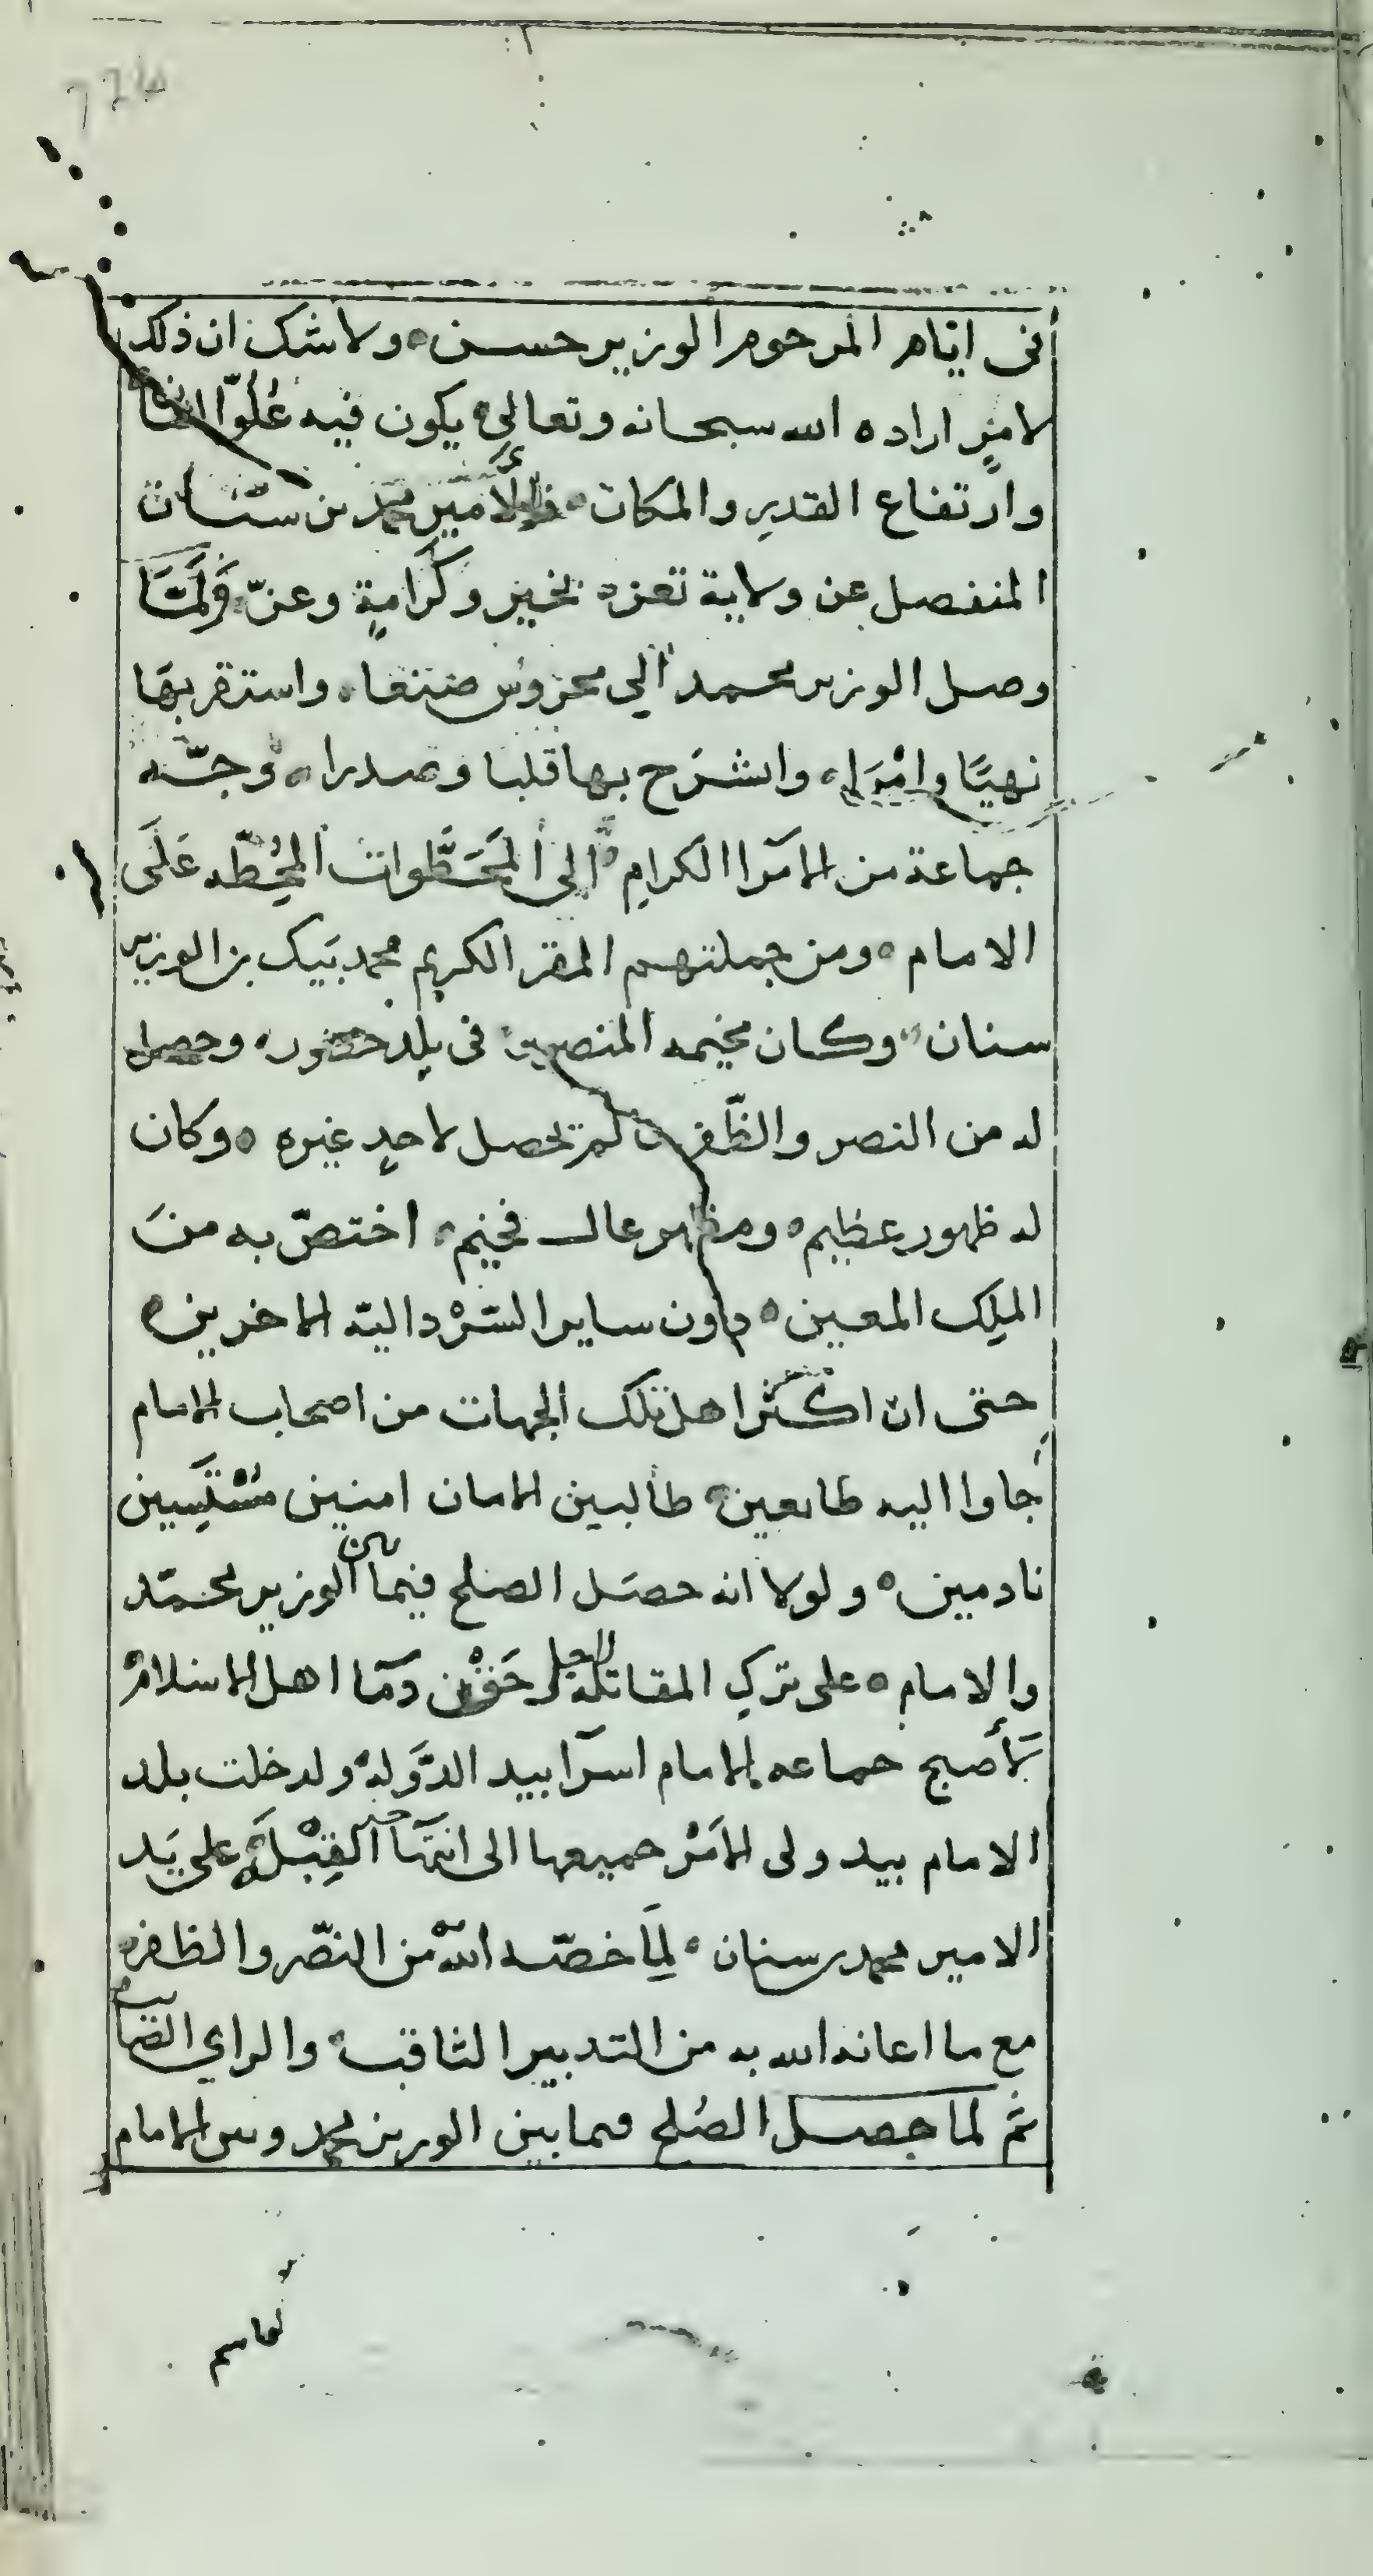 في ايام المرحوم الوزير حسن ولا شك ان ذلك
لامرٍ اراده الله سبحانه وتعالى يكون فيه عُلُوّ الشان
وارتفاع القدرِ والمكان فالأمير محمد بن سنان
المنفصل عن ولاية تعز بخير وكرامةٍ وعزّ وَلَمَّا
وصل الوزير محمد الى محروس صنعا واستقر بها
نهيًا وامْرا وانشرَح بها قلبا وصدرا وجّه
جماعة من الامرا الكرام الى المَحَطَّوات المُحِطّه عَلَى
الامام ومن جملتهم المقر الكريم محمد بَيك بن الوزير
سنان وكان مخيمه المنصور في بلد حضور وحصل
له من النصر والظّفر لم يحصل لاحدٍ غيره وكان
له ظهور عظيم ومظهر عال فخيم اختصّ به منَ
الملِك المعين دون ساير السَّرْداليّه الاخرين
حتى ان اكثر اهل تلك الجهات من اصحاب الامام
جاوا اليه طايعين طالبين الامان امنين
نادمين ولولا انه حصَل الصلح فيما بين الوزير محمّد
والامام على تركِ المقاتله لاجل حَقْن دمَا اهل الاسلام
لأصبح جماعه الامام اسرا بيد الدَّوله ولدخلت بلد
الامام بيد ولى الامَرْ جميعها الى انتهآ القِبْلَة على يَد
الامير محمد بن سنان لِمَا خصّه اللهُ من النصّر والظفر
مع ما اعانه الله به من التدبير الثاقب والراي الصَّايب
ثم لما حصل الصُلح فيما بين الوزير محمد وبين الامام